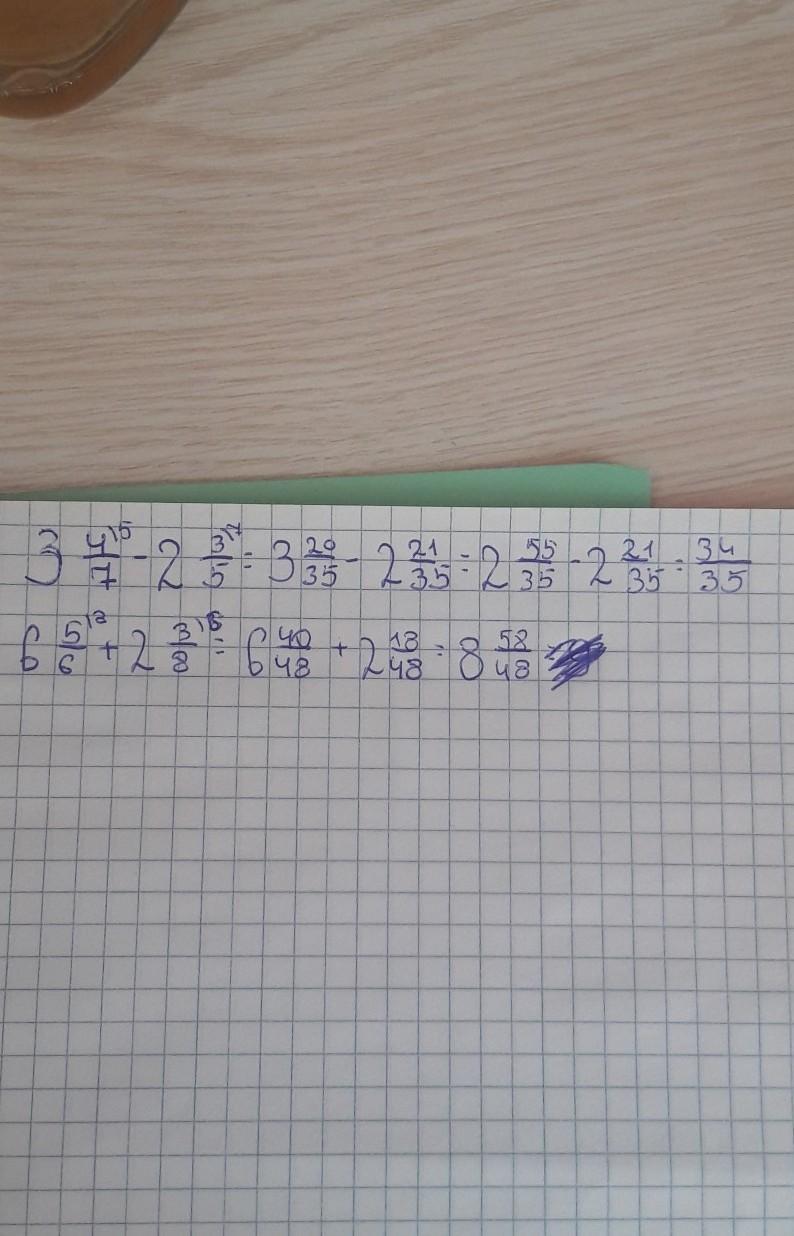 3 4/7 \5 - 2 3/5 \7 = 3 20/35 - 2 21/35 = 2 55/35 - 2 21/35 = 34/35
6 5/6 \8 + 2 3/8 \6 = 6 40/48 + 2 18/48 = 8 58/48